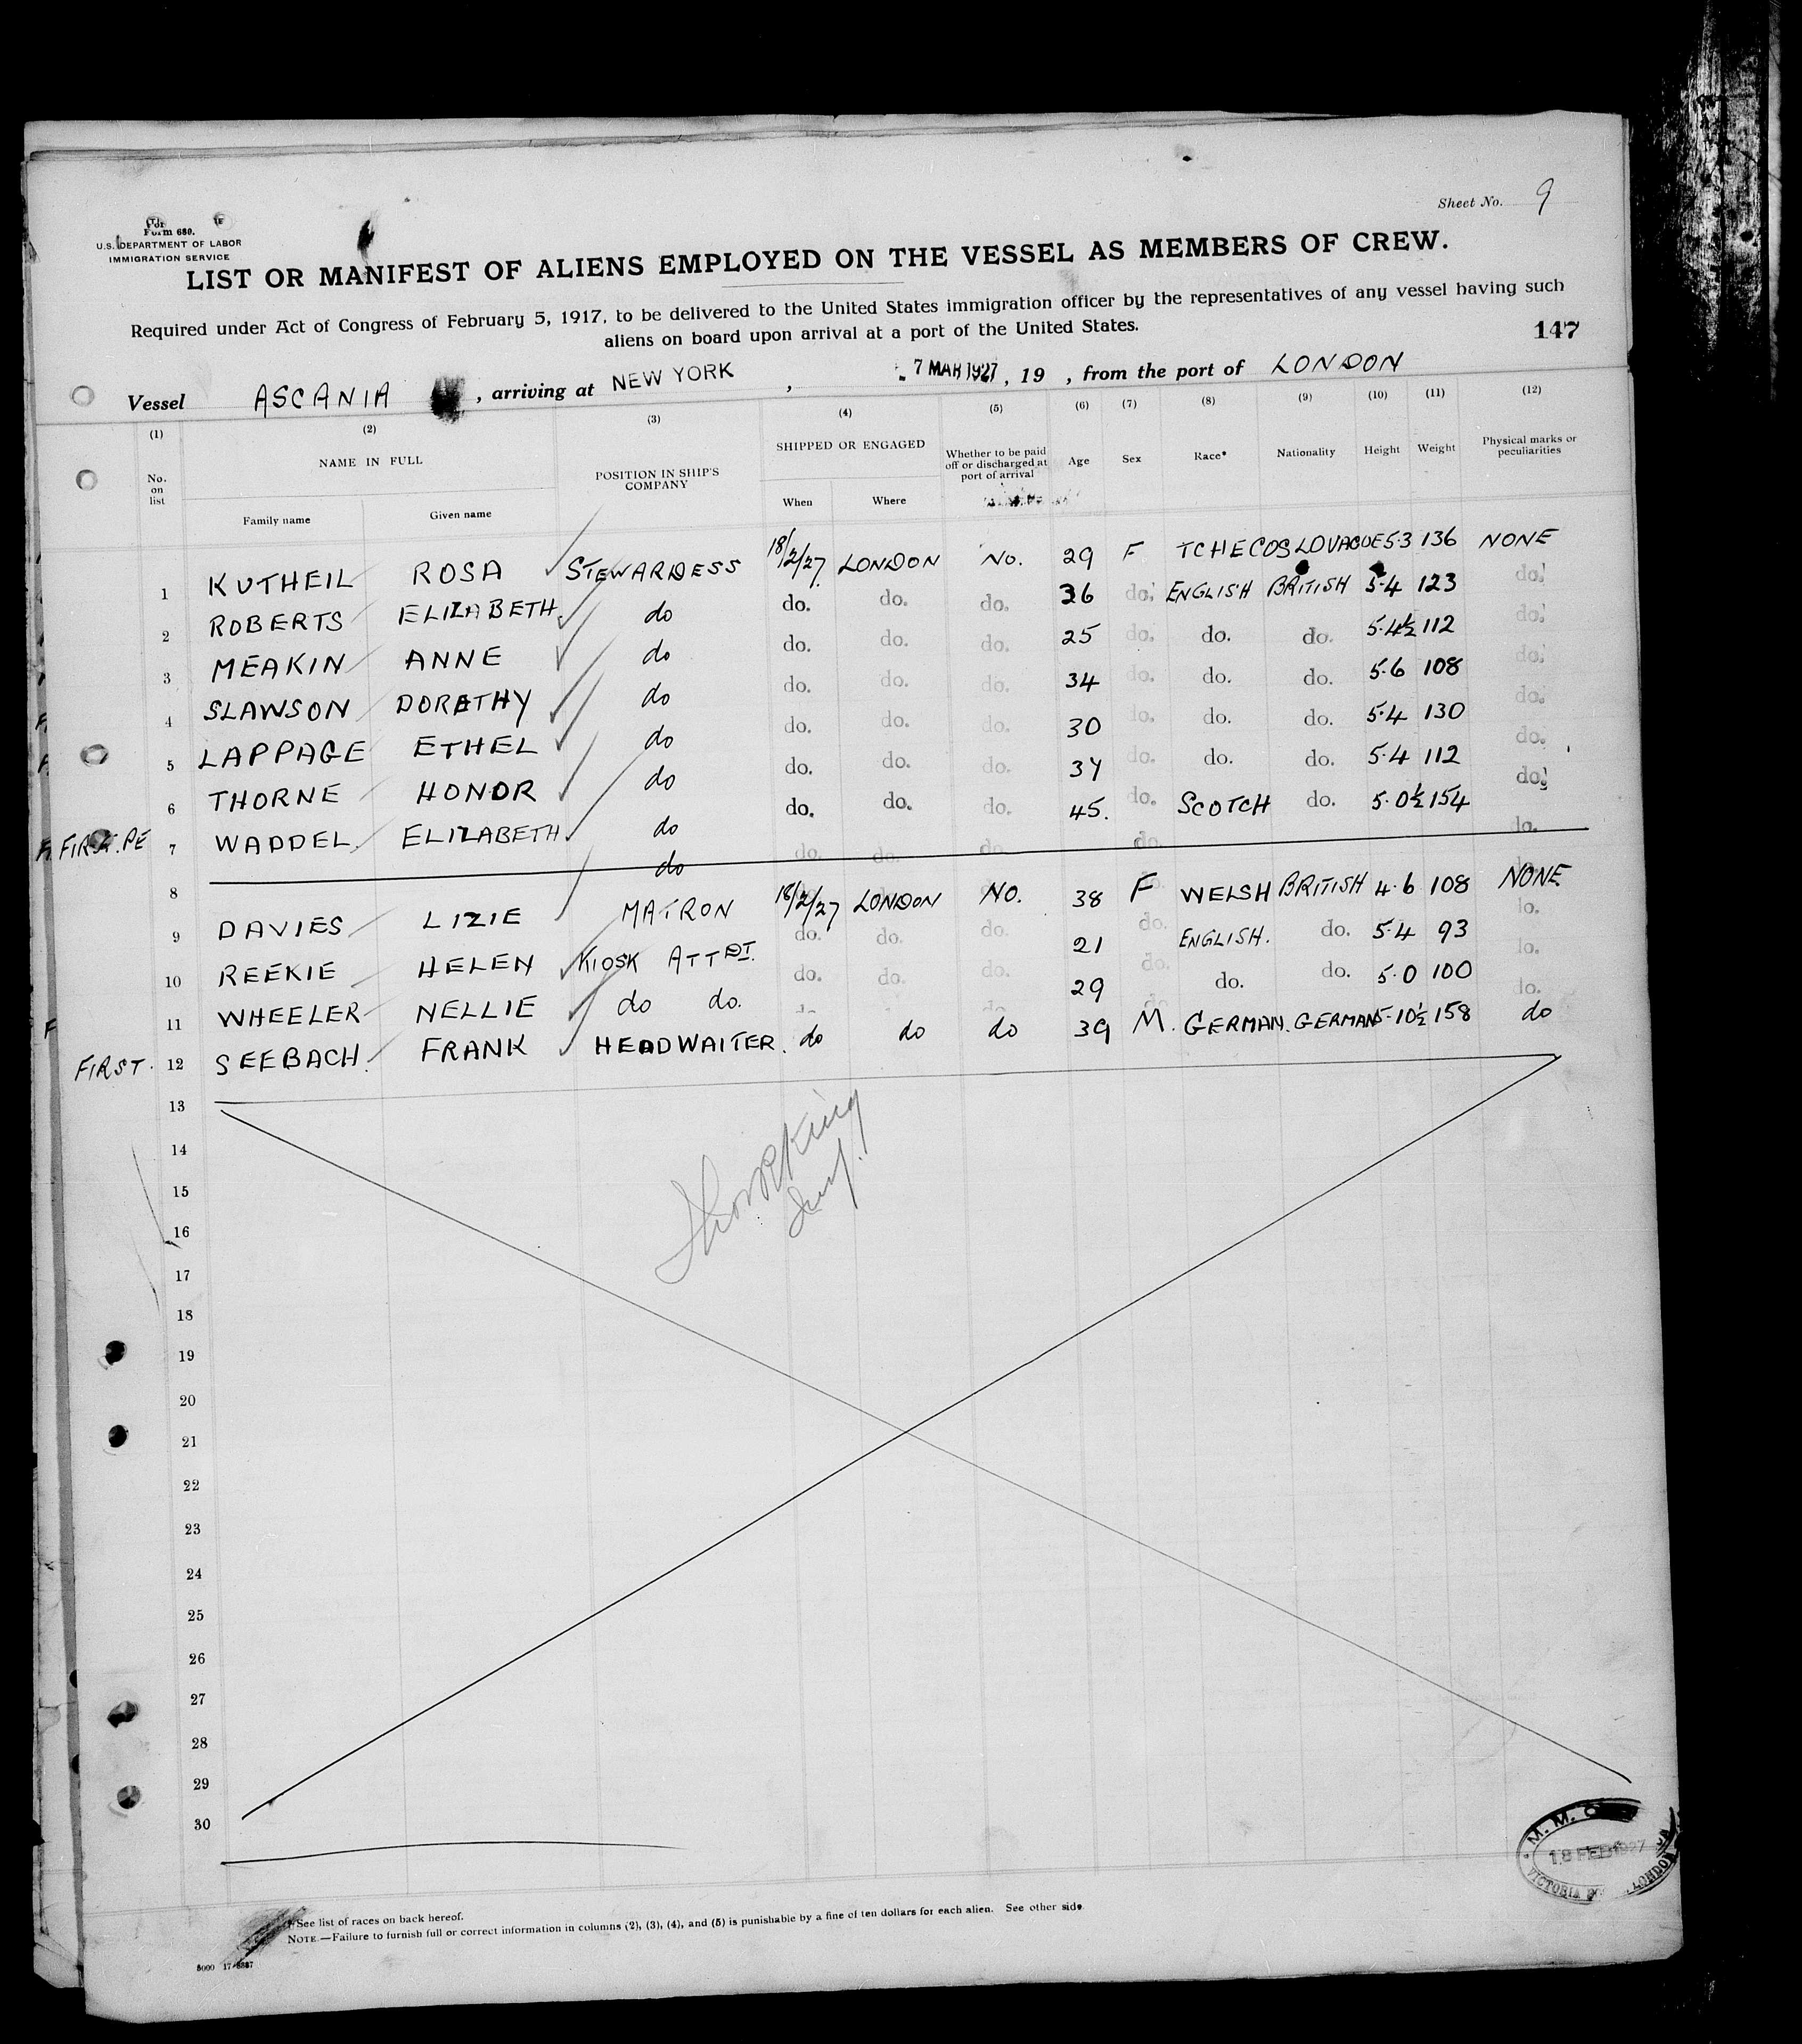 Sheet No. 9
Form 680.
U.S. DEPARTMENT OF LABOR
IMMIGRATION SERVICE
LIST OR MANIFEST OF ALIENS EMPLOYED ON THE VESSEL AS MEMBERS OF CREW.
Required under Act of Congress of February 5, 1917, to be delivered to the United States immigration officer by the representatives of any vessel having such
aliens on board upon arrival at a port of the United States.
147
Vessel ASCANIA , arriving at NEW YORK , 7 MAR 1927 , 19 , from the port of LONDON
(1) (2) (3) (4) (5) (6) (7) (8) (9) (10) (11) (12)
No. on list NAME IN FULL POSITION IN SHIP'S COMPANY SHIPPED OR ENGAGED Whether to be paid off or discharged at port of arrival Age Sex Race* Nationality Height Weight Physical marks or peculiarities
Family name Given name When Where
1 KUTHEIL ROSA STEWARDESS 18/2/27. LONDON No. 29 F TCHECOSLOVAQUE 5·3 136 NONE
2 ROBERTS ELIZABETH do do. do. do. 36 do. ENGLISH BRITISH 5·4 123 do.
3 MEAKIN ANNE do do. do. do. 25 do. do. do. 5·4½ 112 do.
4 SLAWSON DORATHY do do. do. do. 34 do. do. do. 5·6 108 do.
5 LAPPAGE ETHEL do do. do. do. 30 do. do. do. 5·4 130 do.
6 THORNE HONOR do do. do. do. 37 do. do. do. 5·4 112 do.
FIRST. 7 WADDEL ELIZABETH do do. do. do. 45. do. SCOTCH do. 5·0½ 154 do.
8 do do. do. do. do. do.
9 DAVIES LIZIE MATRON 18/2/27 LONDON NO. 38 F WELSH BRITISH 4·6 108 NONE
10 REEKIE HELEN KIOSK ATTDT. do. do. do. 21 do. ENGLISH. do. 5·4 93 do.
11 WHEELER NELLIE do do. do. do. do. 29 do. do. do. 5·0 100 do.
FIRST. 12 SEEBACH FRANK HEADWAITER. do do do 39 M. GERMAN. GERMAN 5·10½ 158 do
13
14
15
16
17
18
19
20
21
22
23
24
25
26
27
28
29
30
18 FEB 1927
VICTORIA LONDON
*See list of races on back hereof.
NOTE.—Failure to furnish full or correct information in columns (2), (3), (4), and (5) is punishable by a fine of ten dollars for each alien. See other side